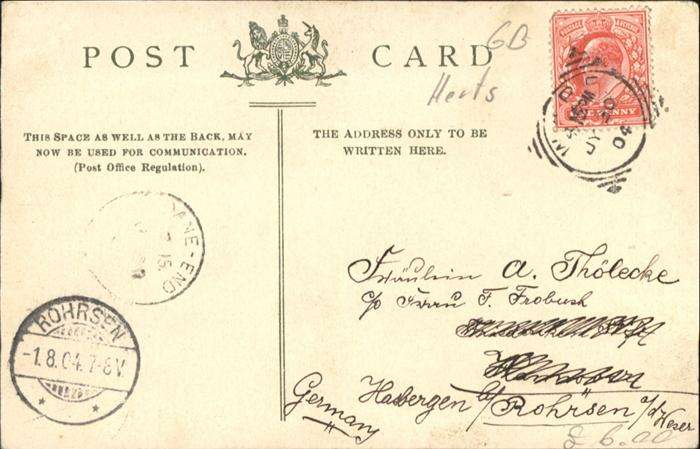 POST CARD
GB
Herts
THIS SPACE AS WELL AS THE BACK, MAY
NOW BE USED FOR COMMUNICATION.
(Post Office Regulation).
THE ADDRESS ONLY TO BE
WRITTEN HERE.
ONE PENNY
04
LANE-END
ROHRSEN
-1.8.04.7-8V.
Fräulein A. Thölecke
c/o Frau F. Frobush
Hassbergen b/ Rohrsen a/d Weser
Germany
£ 6.00